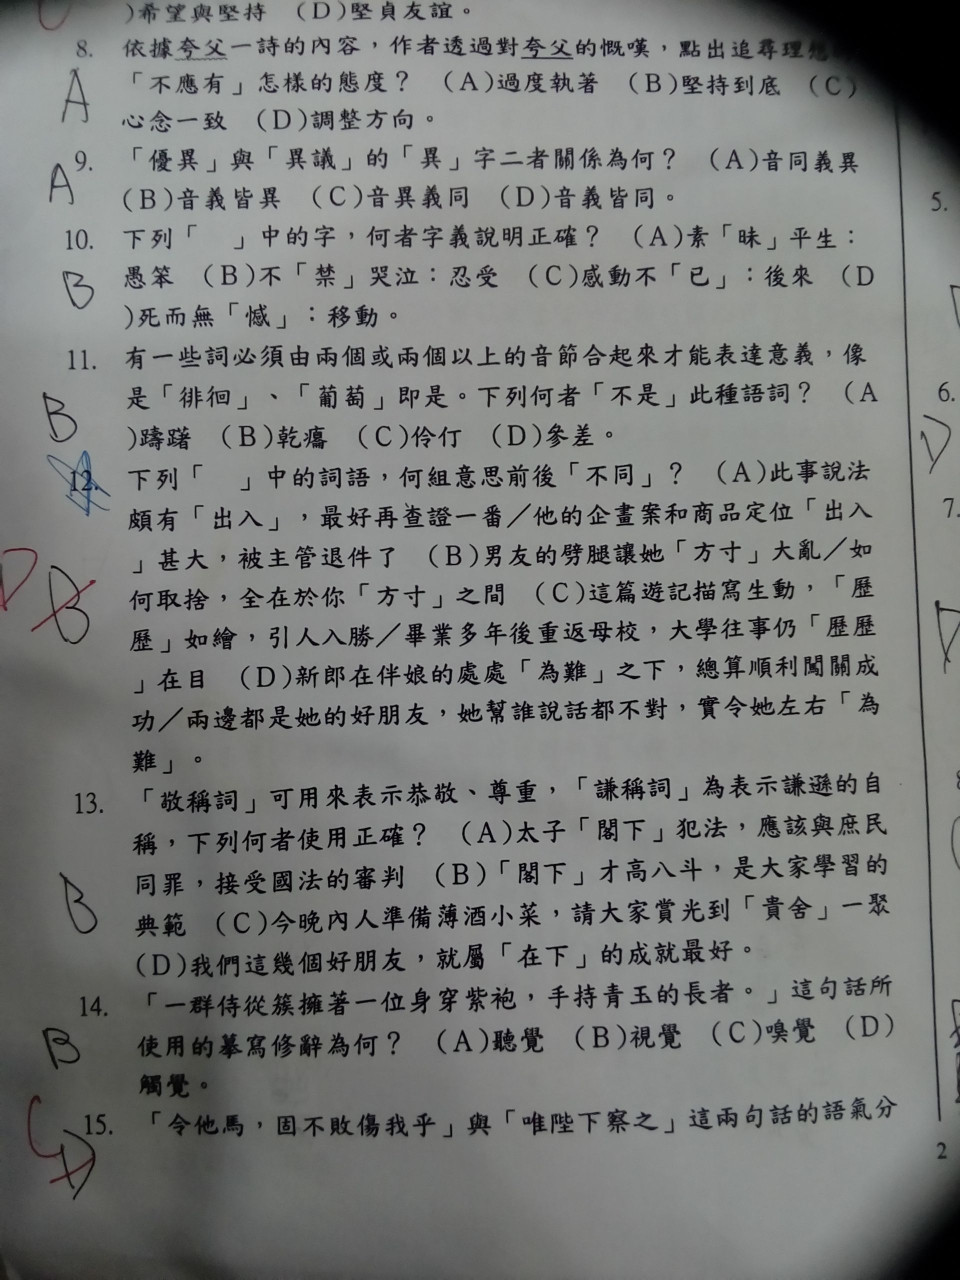 )希望與堅持 (D)堅貞友誼。
8. 依據夸父一詩的內容，作者透過對夸父的慨嘆，點出追尋理想
A 「不應有」怎樣的態度？ (A)過度執著 (B)堅持到底 (C)
心念一致 (D)調整方向。
9. 「優異」與「異議」的「異」字二者關係為何？ (A)音同義異
A (B)音義皆異 (C)音異義同 (D)音義皆同。
5.
10. 下列「　」中的字，何者字義說明正確？ (A)素「昧」平生：
B 愚笨 (B)不「禁」哭泣：忍受 (C)感動不「已」：後來 (D
)死而無「憾」：移動。
11. 有一些詞必須由兩個或兩個以上的音節合起來才能表達意義，像
B 是「徘徊」、「葡萄」即是。下列何者「不是」此種語詞？ (A
6.
)躊躇 (B)乾癟 (C)伶仃 (D)參差。
D
12. 下列「　」中的詞語，何組意思前後「不同」？ (A)此事說法
頗有「出入」，最好再查證一番／他的企畫案和商品定位「出入
7.
」甚大，被主管退件了 (B)男友的劈腿讓她「方寸」大亂／如
D B 何取捨，全在於你「方寸」之間 (C)這篇遊記描寫生動，「歷
歷」如繪，引人入勝／畢業多年後重返母校，大學往事仍「歷歷
」在目 (D)新郎在伴娘的處處「為難」之下，總算順利闖關成
功／兩邊都是她的好朋友，她幫誰說話都不對，實令她左右「為
難」。
13. 「敬稱詞」可用來表示恭敬、尊重，「謙稱詞」為表示謙遜的自
稱，下列何者使用正確？ (A)太子「閣下」犯法，應該與庶民
B 同罪，接受國法的審判 (B)「閣下」才高八斗，是大家學習的
典範 (C)今晚內人準備薄酒小菜，請大家賞光到「貴舍」一聚
(D)我們這幾個好朋友，就屬「在下」的成就最好。
14. 「一群侍從簇擁著一位身穿紫袍，手持青玉的長者。」這句話所
B 使用的摹寫修辭為何？ (A)聽覺 (B)視覺 (C)嗅覺 (D)
觸覺。
C D 15. 「令他馬，固不敗傷我乎」與「唯陛下察之」這兩句話的語氣分
2